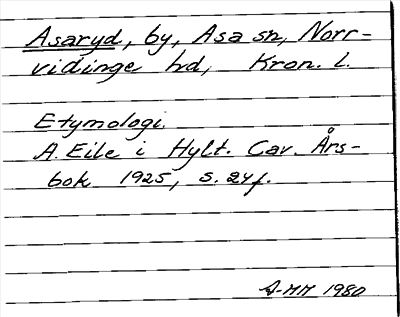 Asaryd, by, Asa sn, Norr-
vidinge hd, Kron. l.
Etymologi.
A. Eile i Hylt. Cav. Års-
bok 1925, s. 24f.
A-MM 1980